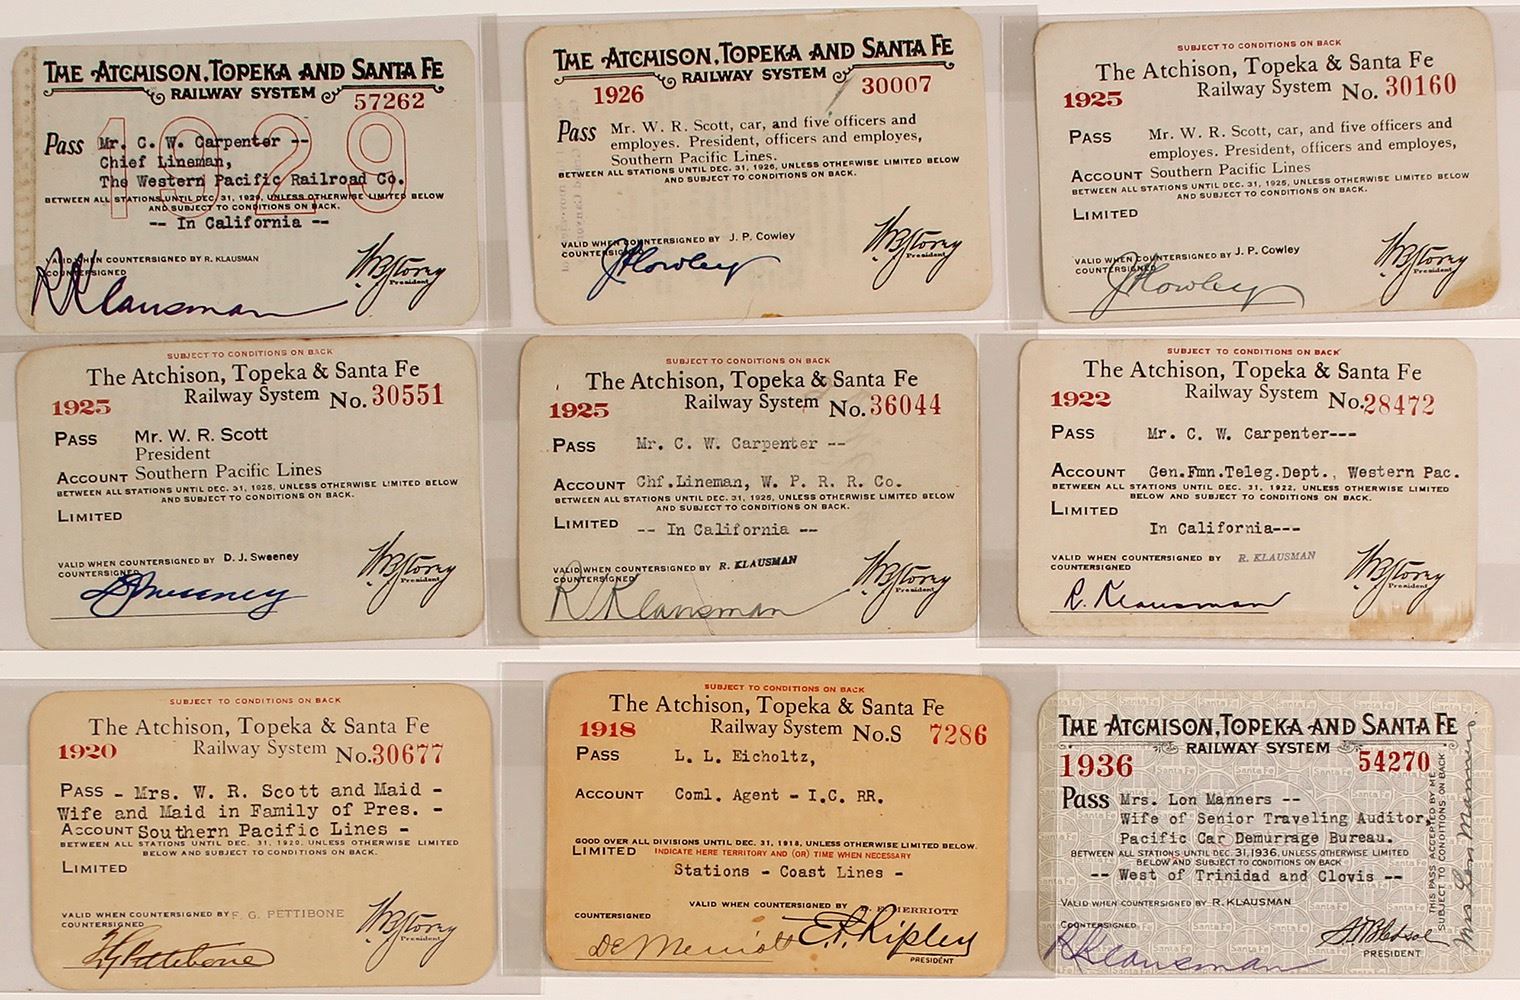 THE ATCHISON, TOPEKA AND SANTA FE
RAILWAY SYSTEM
57262
1929
Pass Mr. C. W. Carpenter --
Chief Lineman,
The Western Pacific Railroad Co.
BETWEEN ALL STATIONS UNTIL DEC. 31, 1929, UNLESS OTHERWISE LIMITED BELOW
AND SUBJECT TO CONDITIONS ON BACK.
-- In California --
VALID WHEN COUNTERSIGNED BY R. KLAUSMAN
COUNTERSIGNED
R Klausman
W B Storey
President
THE ATCHISON, TOPEKA AND SANTA FE
RAILWAY SYSTEM
1926
30007
Pass Mr. W. R. Scott, car, and five officers and
employes. President, officers and employes,
Southern Pacific Lines.
BETWEEN ALL STATIONS UNTIL DEC. 31, 1926, UNLESS OTHERWISE LIMITED BELOW
AND SUBJECT TO CONDITIONS ON BACK.
VALID WHEN COUNTERSIGNED BY J. P. Cowley
COUNTERSIGNED
J P Cowley
W B Storey
President
SUBJECT TO CONDITIONS ON BACK
The Atchison, Topeka & Santa Fe
1925 Railway System No. 30160
PASS Mr. W. R. Scott, car, and five officers and
employes. President, officers and employes,
ACCOUNT Southern Pacific Lines
BETWEEN ALL STATIONS UNTIL DEC. 31, 1925, UNLESS OTHERWISE LIMITED BELOW
AND SUBJECT TO CONDITIONS ON BACK.
LIMITED
VALID WHEN COUNTERSIGNED BY J. P. Cowley
COUNTERSIGNED
J P Cowley
W B Storey
President
SUBJECT TO CONDITIONS ON BACK
The Atchison, Topeka & Santa Fe
1925 Railway System No. 30551
PASS Mr. W. R. Scott
President
ACCOUNT Southern Pacific Lines
BETWEEN ALL STATIONS UNTIL DEC. 31, 1925, UNLESS OTHERWISE LIMITED BELOW
AND SUBJECT TO CONDITIONS ON BACK.
LIMITED
VALID WHEN COUNTERSIGNED BY D. J. Sweeney
COUNTERSIGNED
D J Sweeney
W B Storey
President
SUBJECT TO CONDITIONS ON BACK
The Atchison, Topeka & Santa Fe
1925 Railway System No. 36044
PASS Mr. C. W. Carpenter --
ACCOUNT Chf.Lineman, W. P. R. R. Co.
BETWEEN ALL STATIONS UNTIL DEC. 31, 1925, UNLESS OTHERWISE LIMITED BELOW
AND SUBJECT TO CONDITIONS ON BACK.
LIMITED -- In California --
VALID WHEN COUNTERSIGNED BY R. KLAUSMAN
COUNTERSIGNED
R Klausman
W B Storey
President
SUBJECT TO CONDITIONS ON BACK
The Atchison, Topeka & Santa Fe
1922 Railway System No. 28472
PASS Mr. C. W. Carpenter---
ACCOUNT Gen.Fmn.Teleg.Dept., Western Pac.
BETWEEN ALL STATIONS UNTIL DEC. 31, 1922, UNLESS OTHERWISE LIMITED
BELOW AND SUBJECT TO CONDITIONS ON BACK.
LIMITED
In California---
VALID WHEN COUNTERSIGNED BY R. KLAUSMAN
COUNTERSIGNED
R. Klausman
W B Storey
President
SUBJECT TO CONDITIONS ON BACK
The Atchison, Topeka & Santa Fe
1920 Railway System No. 30677
PASS - Mrs. W. R. Scott and Maid -
Wife and Maid in Family of Pres. -
ACCOUNT Southern Pacific Lines -
BETWEEN ALL STATIONS UNTIL DEC. 31, 1920, UNLESS OTHERWISE LIMITED
BELOW AND SUBJECT TO CONDITIONS ON BACK.
LIMITED
VALID WHEN COUNTERSIGNED BY F. G. PETTIBONE
COUNTERSIGNED
F G Pettibone
W B Storey
President
SUBJECT TO CONDITIONS ON BACK
The Atchison, Topeka & Santa Fe
1918 Railway System No.S 7286
PASS L. L. Eicholtz,
ACCOUNT Coml. Agent - I.C. RR.
GOOD OVER ALL DIVISIONS UNTIL DEC. 31, 1918, UNLESS OTHERWISE LIMITED BELOW.
LIMITED INDICATE HERE TERRITORY AND (OR) TIME WHEN NECESSARY
Stations - Coast Lines -
VALID WHEN COUNTERSIGNED BY D. E. MERRIOTT
COUNTERSIGNED
D E Merriott
E. P. Ripley
PRESIDENT
THE ATCHISON, TOPEKA AND SANTA FE
RAILWAY SYSTEM
1936
54270
Pass Mrs. Lon Manners --
Wife of Senior Traveling Auditor,
Pacific Car Demurrage Bureau.
BETWEEN ALL STATIONS UNTIL DEC. 31, 1936, UNLESS OTHERWISE LIMITED
BELOW AND SUBJECT TO CONDITIONS ON BACK
-- West of Trinidad and Clovis --
VALID WHEN COUNTERSIGNED BY R. KLAUSMAN
COUNTERSIGNED
R Klausman
S T Bledsoe
PRESIDENT
THIS PASS ACCEPTED BY ME
SUBJECT TO CONDITIONS ON BACK
Mrs Lon Manners